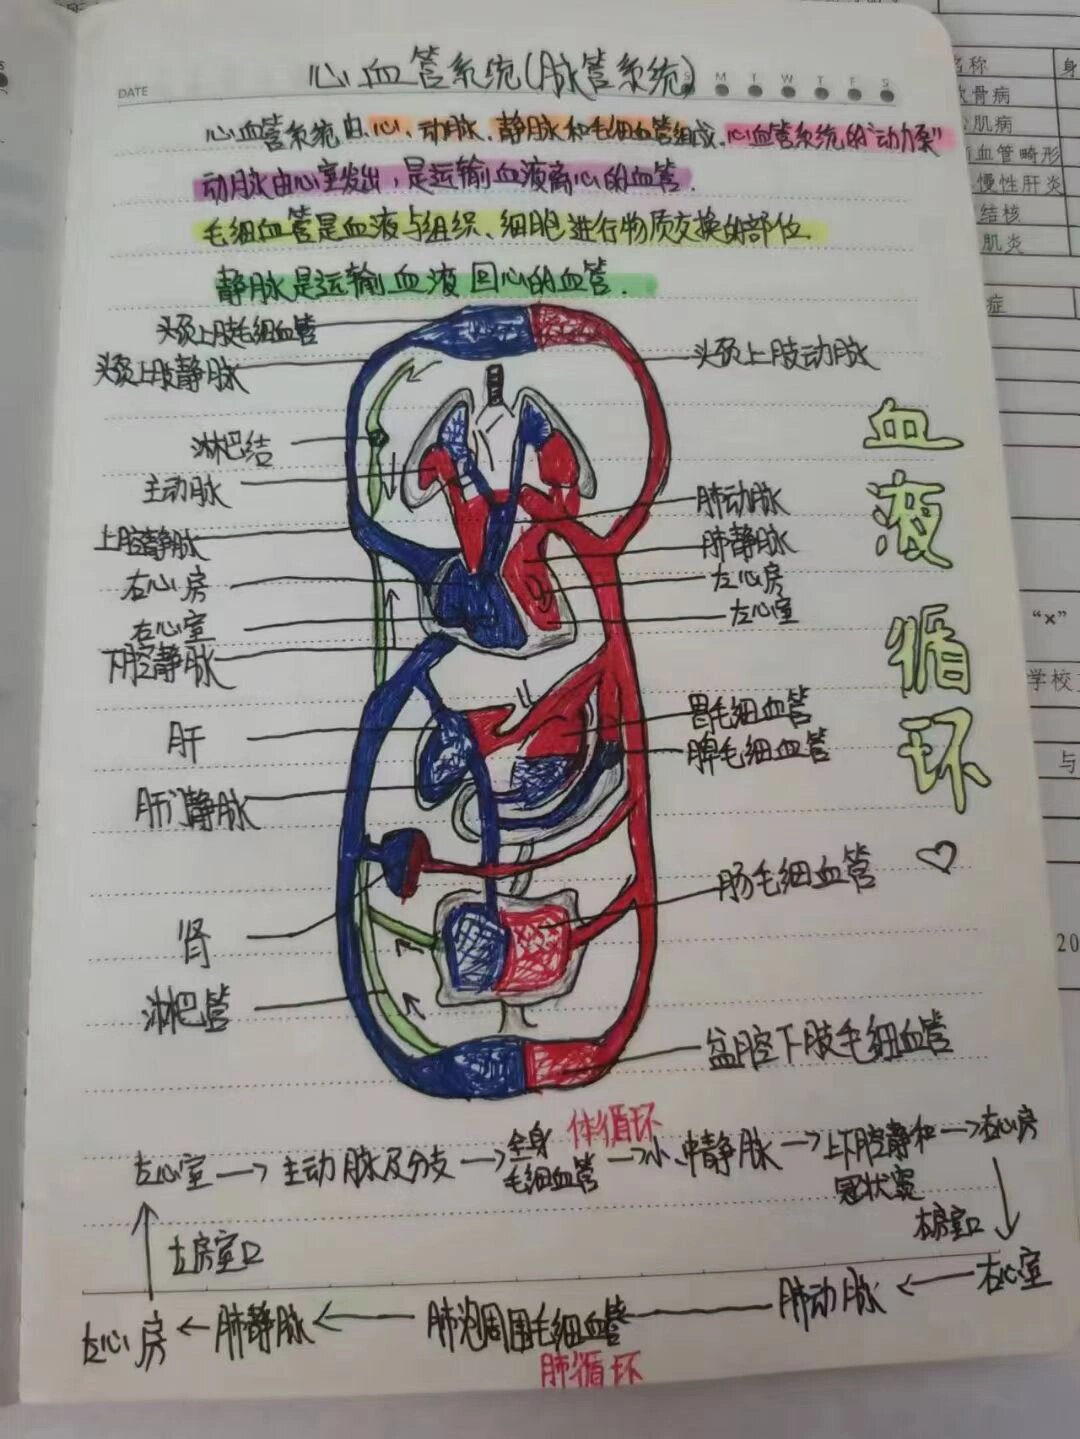 心血管系统(脉管系统)
DATE
M T W T F S
心血管系统由心、动脉、静脉和毛细血管组成,心血管系统的"动力泵"
动脉由心室发出,是运输血液离心的血管.
毛细血管是血液与组织、细胞进行物质交换的部位.
静脉是运输血液回心的血管.
头颈上肢毛细血管
头颈上肢静脉
头颈上肢动脉
淋巴结
主动脉
上腔静脉
右心房
右心室
下腔静脉
肺动脉
肺静脉
左心房
左心室
肝
肝门静脉
胃毛细血管
脾毛细血管
肠毛细血管
肾
淋巴管
盆腔下肢毛细血管
血液循环
体循环
左心室→主动脉及分支→全身毛细血管→小、中静脉→上下腔静和冠状窦→右心房
右房室口
左房室口
左心房←肺静脉←肺泡周围毛细血管—肺动脉←右心室
肺循环
名称
身
软骨病
心肌病
血管畸形
慢性肝炎
结核
肌炎
症
"×"
学校
与
20